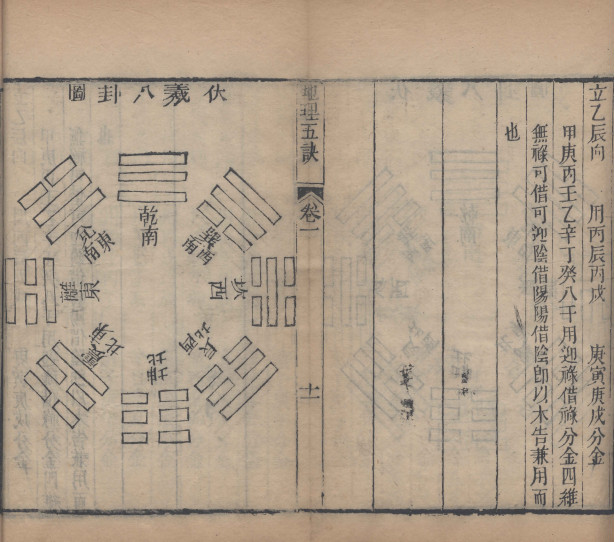 立乙辰向 用丙辰丙戌 庚寅庚戌分金
甲庚丙壬乙辛丁癸八干用迎祿借祿分金四維
無祿可借可迎陰借陽陽借陰卽以本告兼用而
也
地理五訣
卷一
十一
伏羲八卦圖
乾南
巽西南
坎西
艮西北
坤北
震東北
離東
兌東南